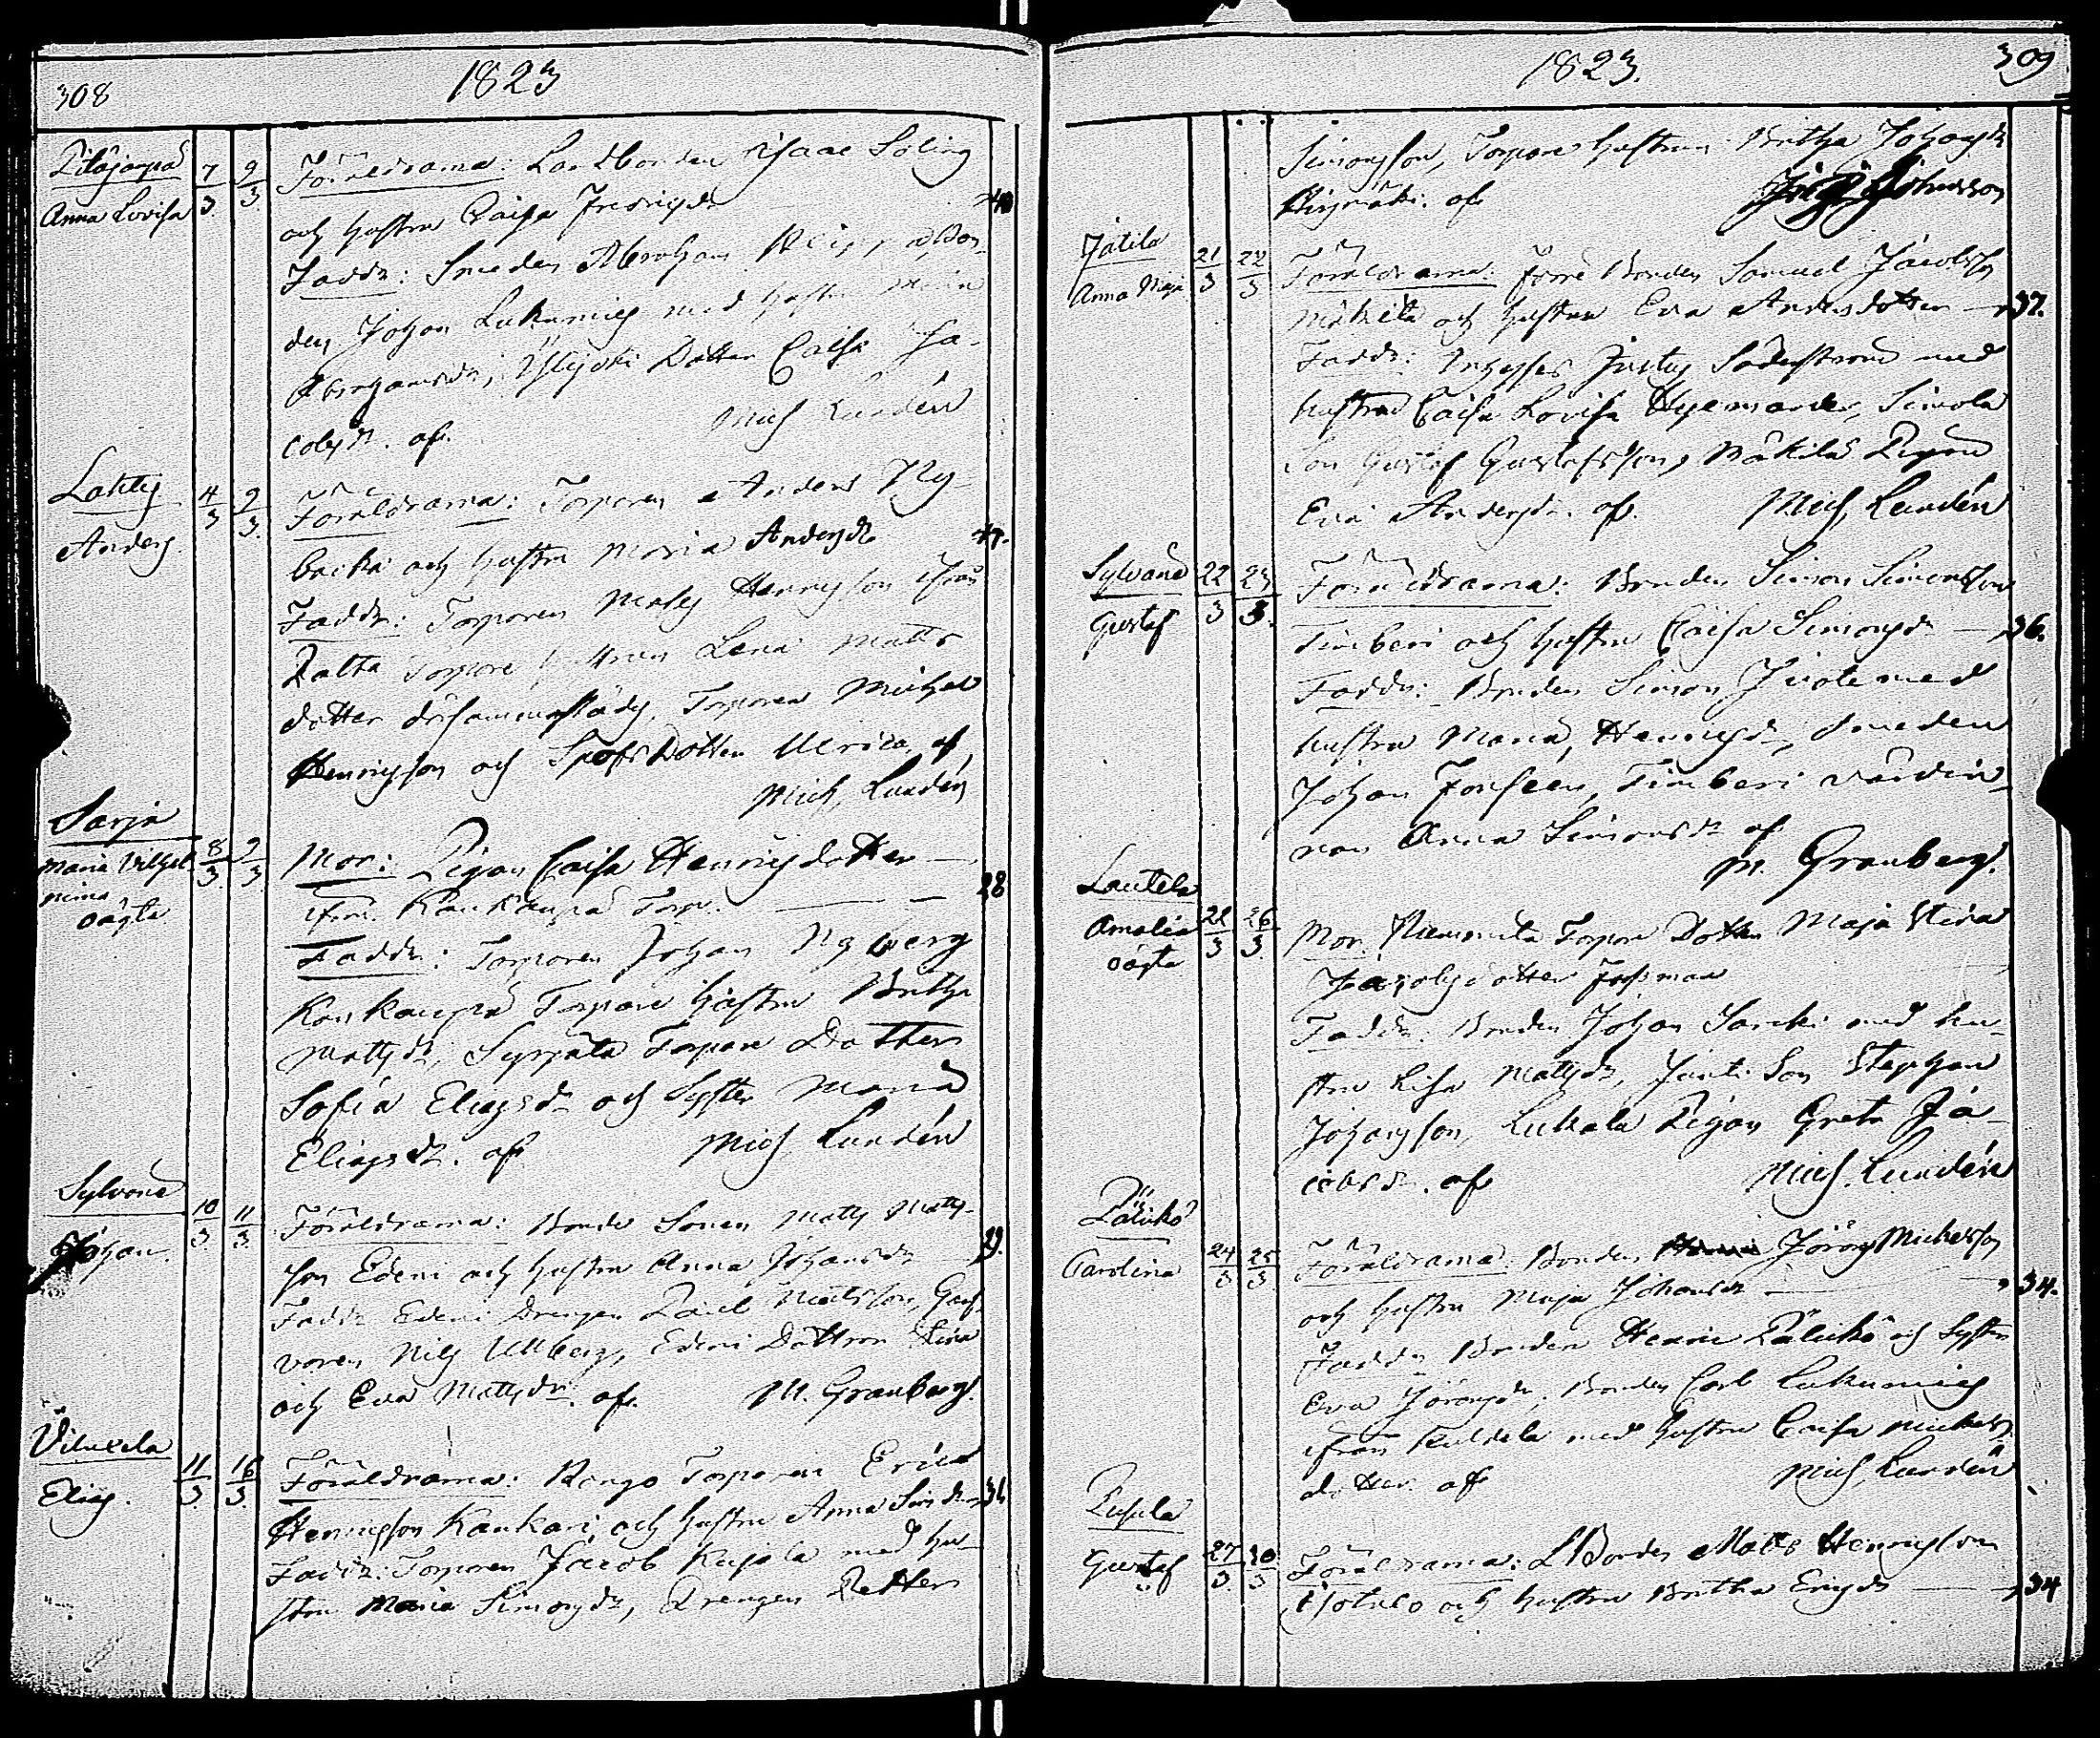 308
1823
Pilajärvi
Anna Lovisa
7/3 9/3
Föräldrarna: Landbonden Isaac Söling
och hustru Caisa Fredrigsdr
40
Faddr: Smeden Abraham Bon-
den Johan Lukumies med hustru Maria
Abrahamsdr, Dotter Caisa Ja-
cobsdr. af. Mich Lundén
Lahty
Anders
4/3 9/3
Föräldrarna: Torparen Anders Ny-
backa och hustru Maria Andersdr
47.
Faddr: Torparen Mats Henricsson ifrån
Torpare hustrun Lena Matts
dotter därsammastädes, Torparen Michel
Henricsson och Dotter Ulrica, af
Mich, Lundén
Sarja
Maria Vilhel-
mina
oägta
8/3 9/3
Mor: Pigan Caisa Henricsdotter
28
ifrn. Kankanpä Torp.
Faddr: Torparen Johan Nyberg
Kankanpä Torpare hustru Britha
Mattsdr, Syrjäla Torpare Dotter
Sofia Eliaesdr och Syster Maria
Eliaesdr. af Mich Lundén
Sylvänä
Johan
10/3 11/3
Föräldrarna: Bonde Sonen Matts Matts-
son Edeni och hustru Anna Johansdr
29.
Faddr Edeni Drengen Matsson, Garf-
varen Nils Ullberg, Edeni Döttrar Lena
och Eva Mattsdr. af. M. Granberg.
Viluxela
Elias.
11/3 16/3
Föräldrarna: Torparen Eric
Henricsson Kankari, och hustru Anna Simsdr
36
Faddr: Torparen Jacob Kujala med hu-
stru Maria Simonsdr, Drengen Petter
1823.
309
Simonsson, Torpare hustrun Britha Johansdr
af Johansson
Jätilä
Anna Maja
21/3 22/3
Föräldrarna: Förre Bonden Samuel Jacobsson
Mäkilä och hustru Eva Andersdotter
37.
Faddr: Justus Söderström med
hustru Caisa Lovisa Simola
Son Gustaf Gustafsson, Mäkilä Pigan
Eva Andersdr. af. Mich, Lundén
Sylvänä
Gustaf
22/3 23/3.
Föräldrarna: Bonden Simon Simonsson
Timberi och hustru Caisa Simonsdr
36.
Faddr: Bonden Simon med
hustru Maria, Henricsdr, Smeden
Johan Forseen, Timberi värdin-
nan Anna Simonsdr af
M. Granberg.
Lautela
Amalia
oägta
22/3 26/3.
Mor. Niementa Torpare Dotter Maja Stina
Jacobsdotter Forsman
Faddr: Bonden Johan Sarcki med hu-
stru Lisa Mattsdr, Son Stephan
Johansson, Luckala Pigan Greta Ja-
cobsdr. af Mich. Lundén
Pälickö
Carolina
24/3 25/3
Föräldrarna Bonden Jöran Michelsson
och hustru Maja Johansdr
34.
Faddr Bonden Henric Pälickö och Syster
Eva Jöransdr, Bonden Carl Lukumies
ifrån med hustru Caisa Michels-
dotter. af Mich, Lundén
Pusula
Gustaf
27/3 30/3
Föräldrarna: LBonden Matts Henricsson
Isotalo och hustru Britha Ericsdr
34